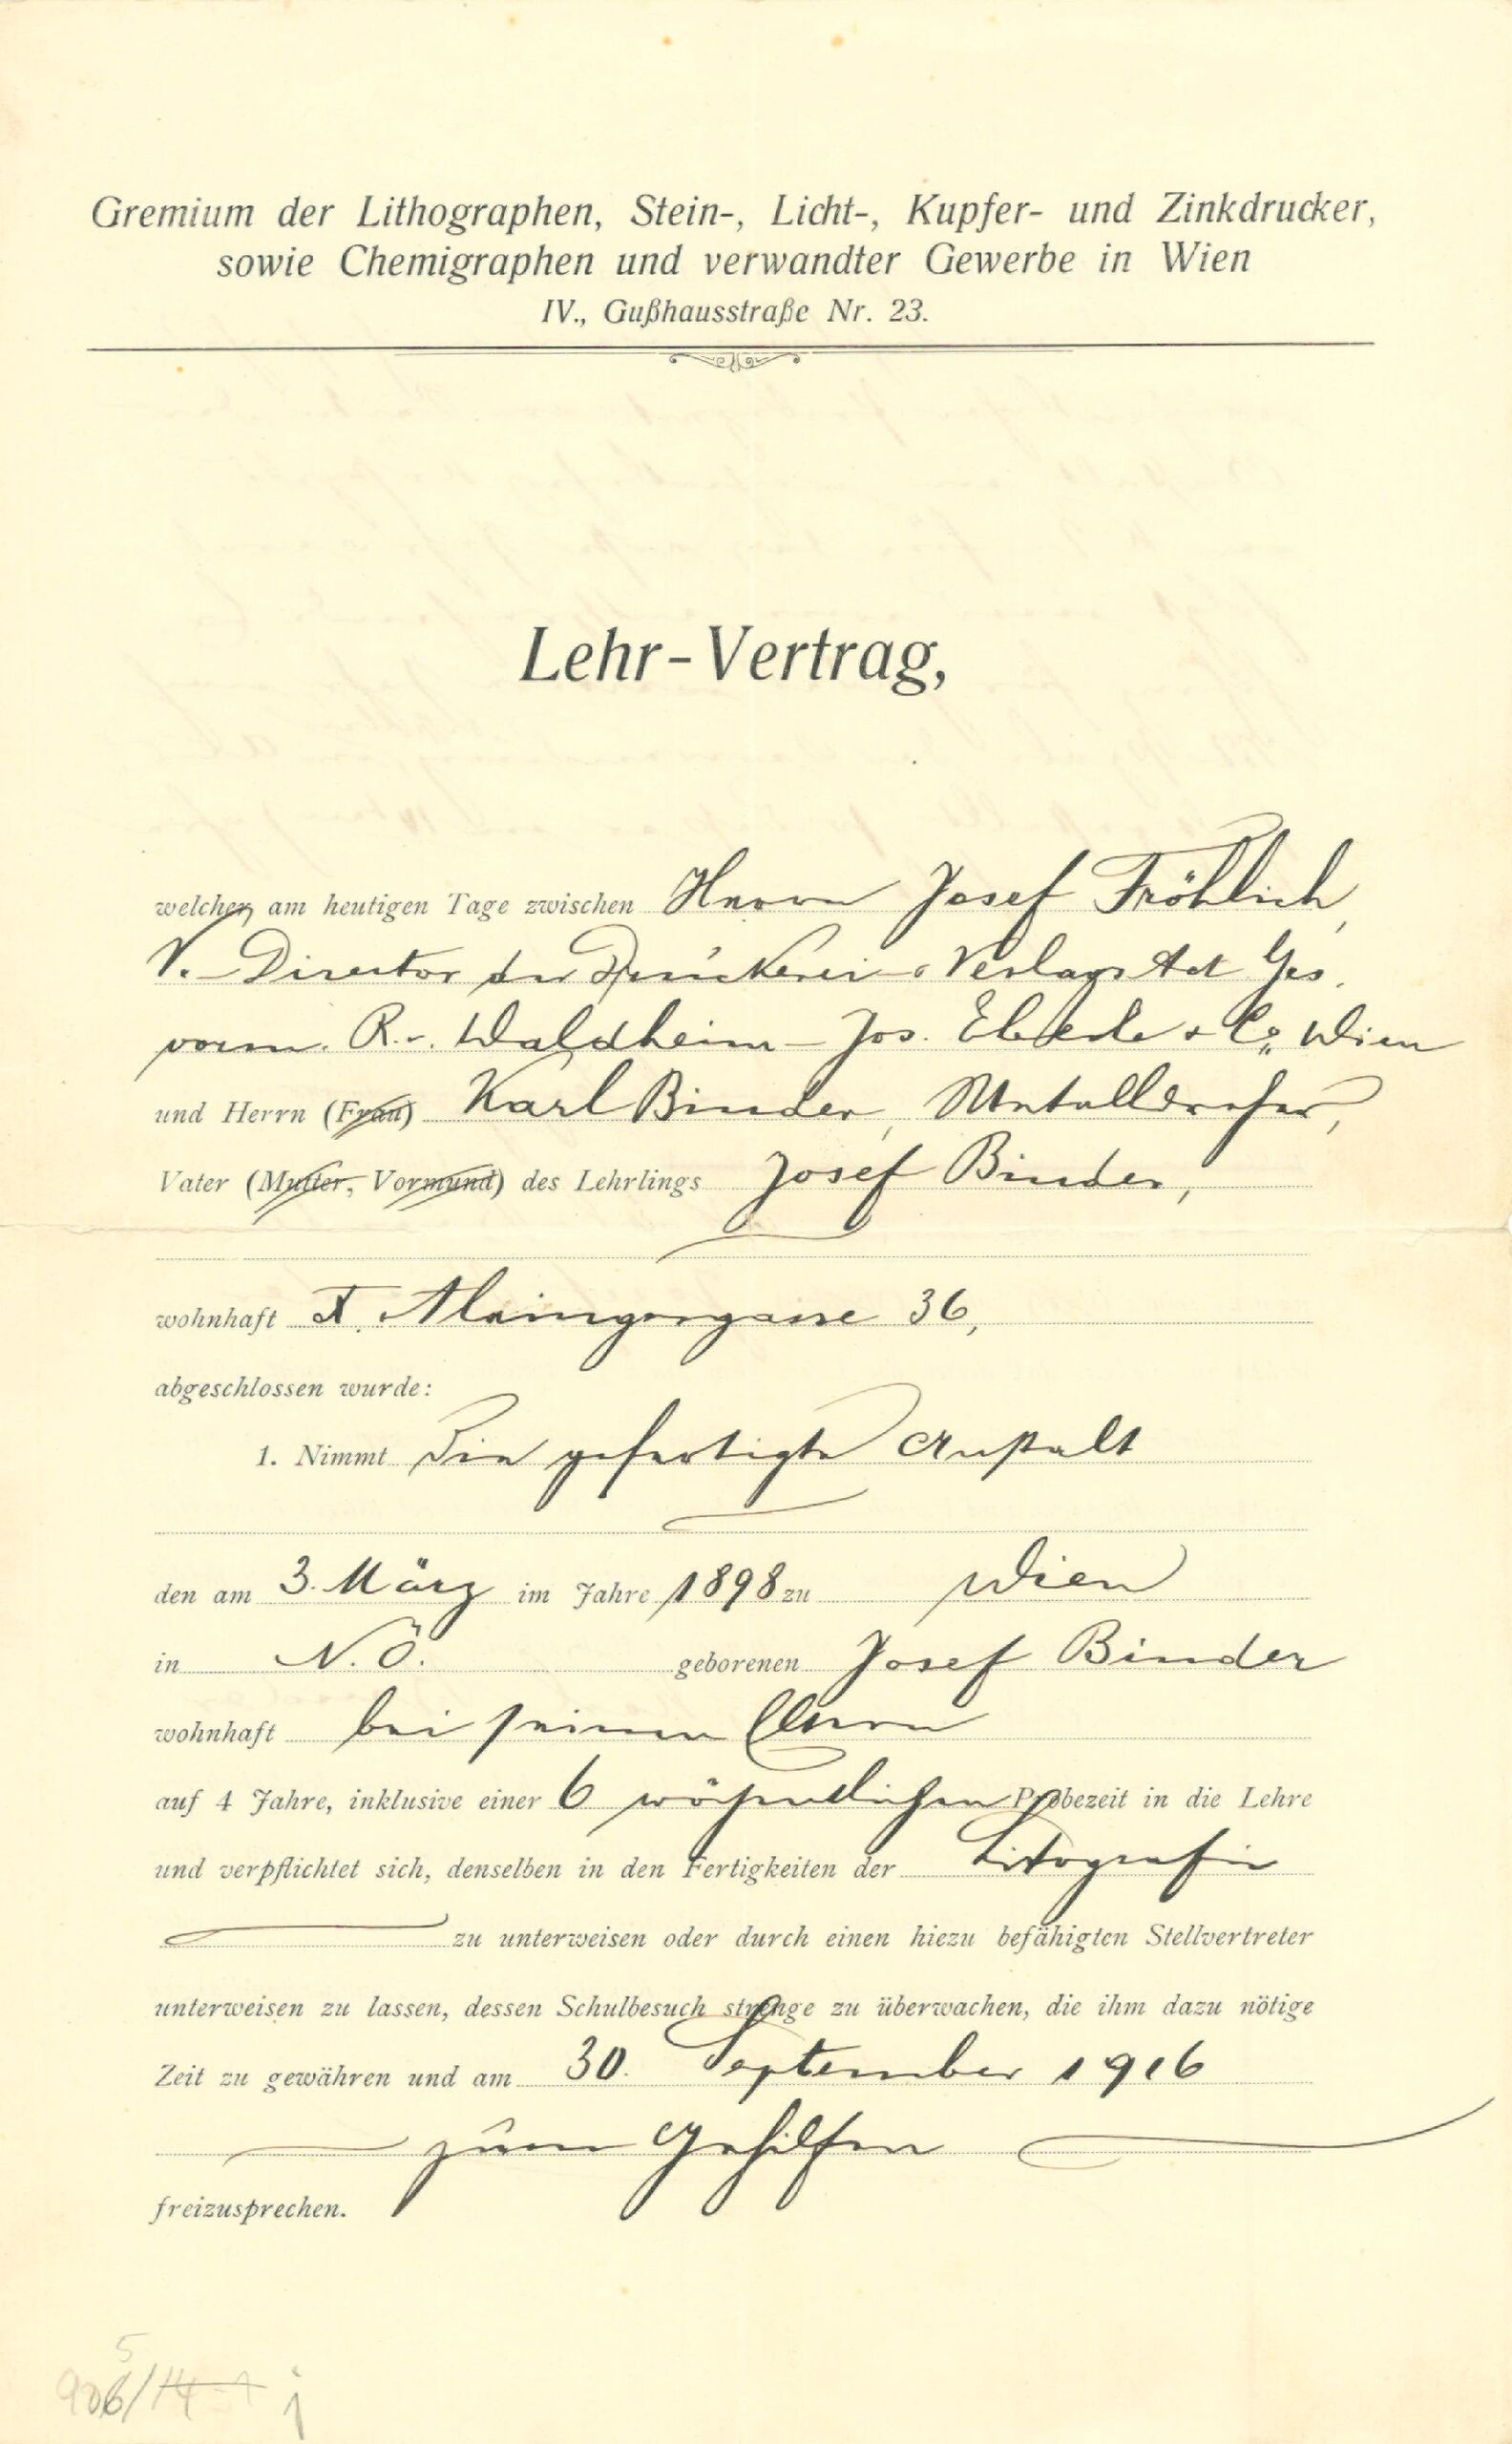 Gremium der Lithographen, Stein-, Licht-, Kupfer- und Zinkdrucker,
sowie Chemigraphen und verwandter Gewerbe in Wien
IV., Gußhausstraße Nr. 23.
Lehr-Vertrag,
welcher am heutigen Tage zwischen Herrn Josef Fröhlich,
V.-Director der Druckerei- & Verlags Act Ges.
vorm. R. v. Waldheim - Jos. Eberle & Co. Wien
und Herrn (Frau) Karl Binder, Metalldreher,
Vater (Mutter, Vormund) des Lehrlings Josef Binder,
wohnhaft X. Alxingergasse 36,
abgeschlossen wurde:
1. Nimmt Die gefertigte Anstalt
den am 3. März im Jahre 1898 zu Wien
in N. Ö. geborenen Josef Binder
wohnhaft bei seinen Eltern
auf 4 Jahre, inklusive einer 6 wöchentlichen Probezeit in die Lehre
und verpflichtet sich, denselben in den Fertigkeiten der Litografie
zu unterweisen oder durch einen hiezu befähigten Stellvertreter
unterweisen zu lassen, dessen Schulbesuch strenge zu überwachen, die ihm dazu nötige
Zeit zu gewähren und am 30. September 1916
zum Gehilfen
freizusprechen.